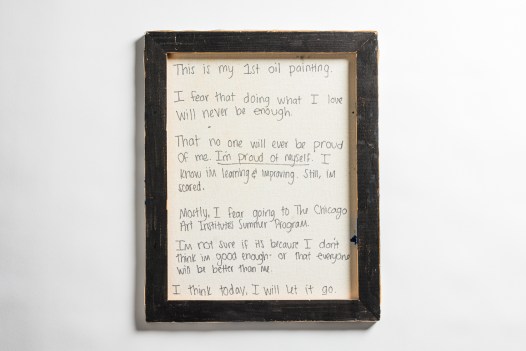 This is my 1st oil painting.
I fear that doing what I love
will never be enough.
That no one will ever be proud
of me. I'm proud of myself. I
know im learning & improving. Still, im
scared.
Mostly, I fear going to The Chicago
Art Institutes Summer Program.
I'm not sure if its because I don't
think im good enough- or that everyone
will be better than me.
I think today, I will let it go.